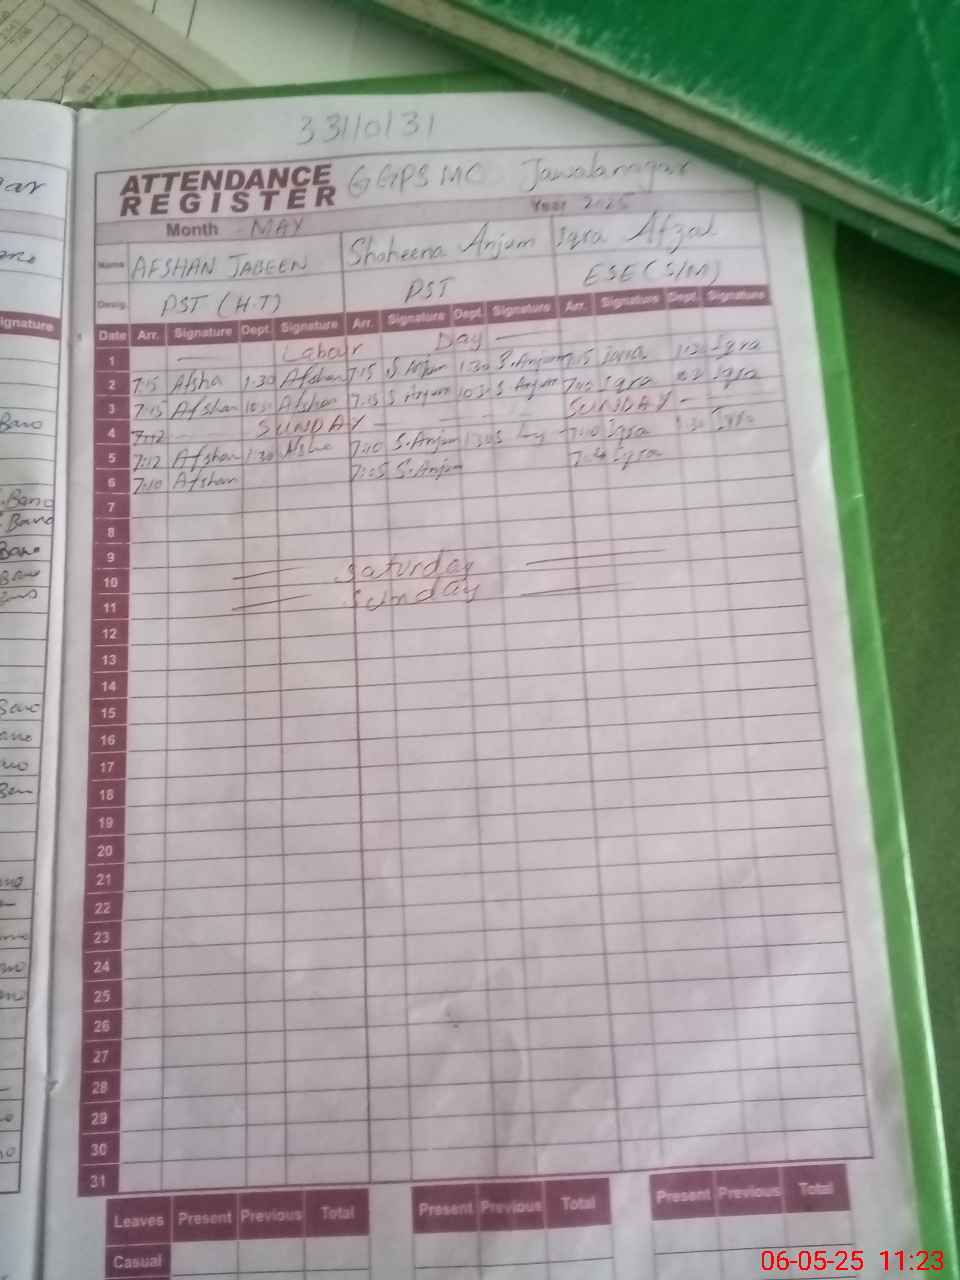 33110131
ATTENDANCE REGISTER GGPS MC Jawalanagar
Month MAY Year 2025
Name AFSHAN JABEEN Shaheena Anjum Iqra Afzal
Desig. PST (H.T) PST ESE (S/M)
Date Arr. Signature Dept. Signature Arr. Signature Dept. Signature Arr. Signature Dept. Signature
1 Labour Day
2 7:15 Afsha 1:30 Afshan 7:15 S Anjum 1:30 S. Anjum 7:15 Iqra 1:30 Iqra
3 7:15 Afshan Afshan 7:15 S Anjum S Anjum Iqra Iqra
4 7:12 SUNDAY SUNDAY
5 7:12 Afshan 1:30 7:10 S. Anjum 7:10 Iqra 1:30 Iqra
6 7:10 Afshan 7:05 S. Anjum Iqra
7
8
9
10 Saturday
11 Sunday
12
13
14
15
16
17
18
19
20
21
22
23
24
25
26
27
28
29
30
31
Leaves Present Previous Total Present Previous Total Present Previous Total
Casual
06-05-25 11:23